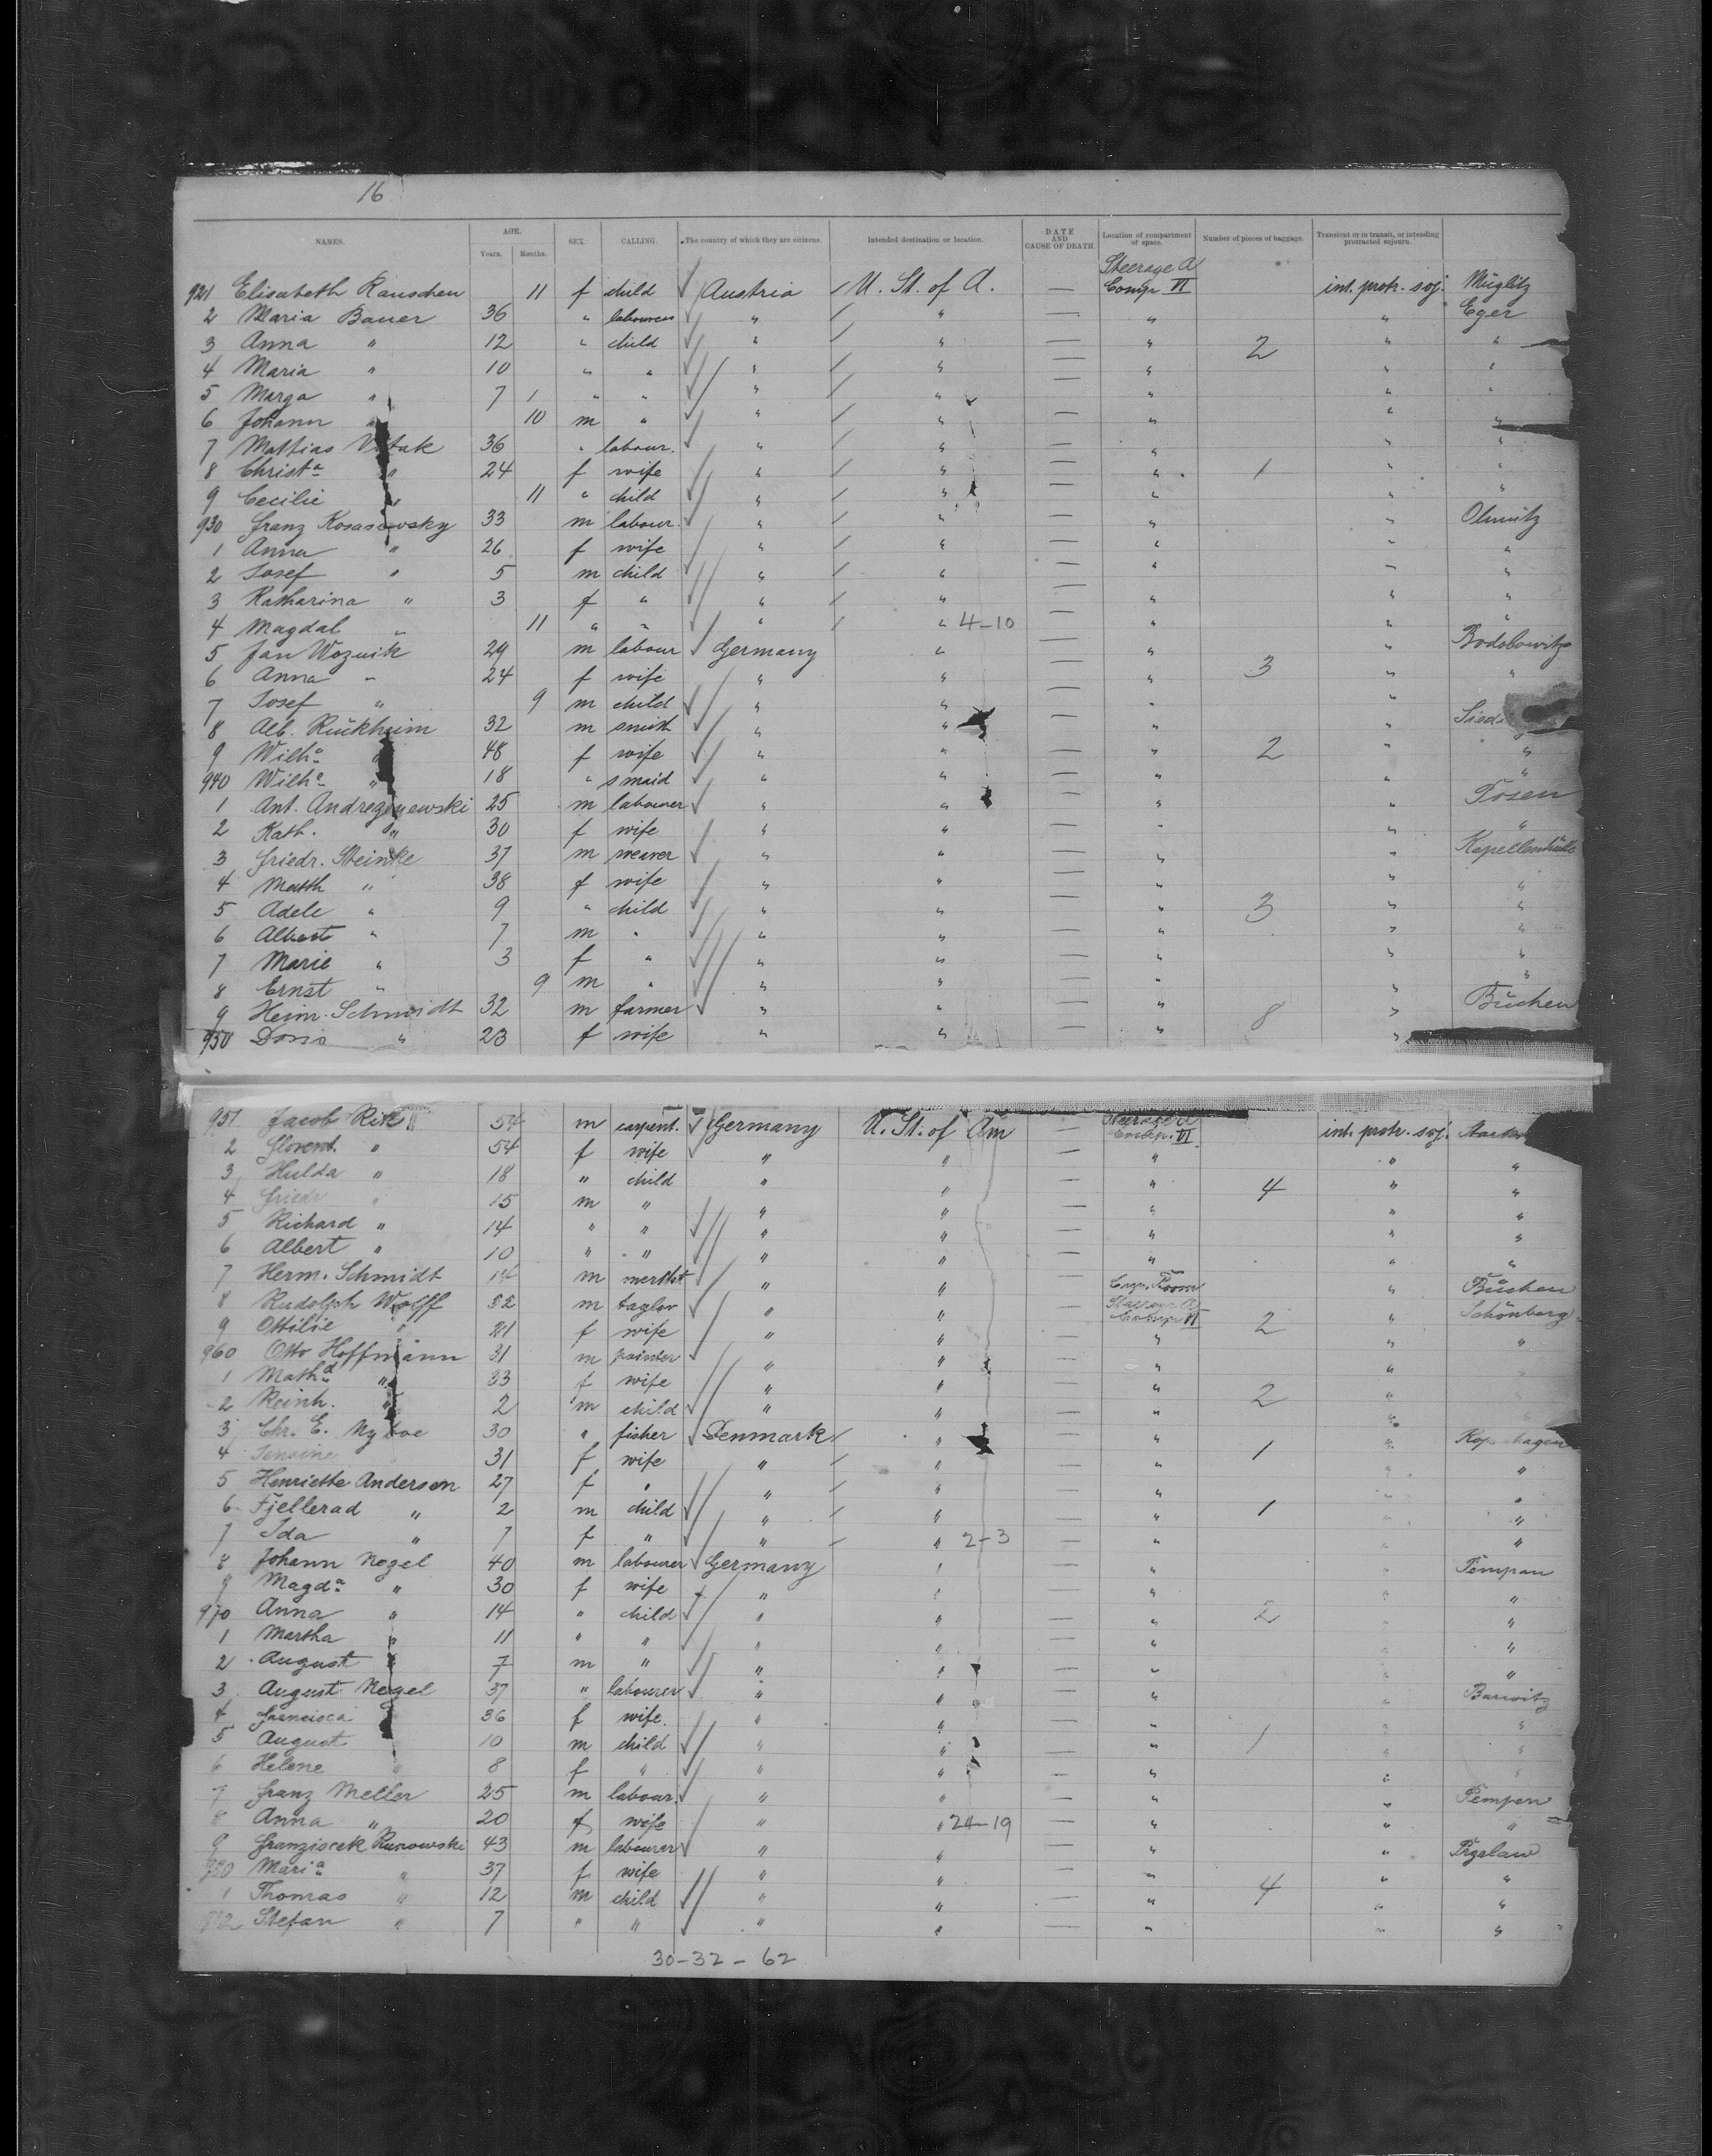 16
NAMES. AGE. Years. Months. SEX. CALLING. The country of which they are citizens. Intended destination or location. DATE AND CAUSE OF DEATH. Location of compartment of space. Number of pieces of baggage. Transient or in transit, or intending protracted sojourn.
921 Elisabeth Rauschen 11 f child Austria U. St. of A. — Steerage A Comp. VI int. protr. soj. Müglitz
2 Maria Bauer 36 " " " — " " Eger
3 Anna " 12 " child " " — " 2 " "
4 Maria " 10 " " " " — " " "
5 Marga " 7 " " " " — " " "
6 Johann " 10 m " " " — " " "
7 Mattias 36 " labour. " " — " " "
8 Christa " 24 f wife " " — " 1 " "
9 Cecilie " 11 " child " " — " " "
930 Franz 33 m labour. " " — " " Olmütz
1 Anna " 26 f wife " " — " " "
2 Josef " 5 m child " " — " " "
3 Katharina " 3 f " " " — " " "
4 Magdal " 11 " " " " 4-10 — " " "
5 Jan Woznik 29 m labour Germany " — " "
6 Anna " 24 f wife " " — " 3 " "
7 Josef " 9 m child " " — " "
8 Alb. Rückheim 32 m smith " " " "
9 Wilh.a " 48 f wife " " — " 2 " "
940 Wilh.e " 18 " smaid " " — " " "
1 Ant. 25 m labourer " " — " " Posen
2 Kath. " 30 f wife " " — " " "
3 Friedr. Steinke 37 m weaver " " — " "
4 Math " 38 f wife " " — " " "
5 Adele " 9 " child " " — " 3 " "
6 Albert " 7 m " " " " " "
7 Marie " 3 f " " " " " "
8 Ernst " 9 m " " " " " "
9 Heinr. Schmidt 32 m farmer " " " 8 " Büchen
950 Doris " 23 f wife " " " "
951 Jacob 54 m carpent. Germany U. St. of Am — Steerage A Comp. VI int. protr. soj.
2 Florent. " 54 f wife " " — " " "
3 Hulda " 18 " child " " — " 4 " "
4 Friedr " 15 m " " " — " " "
5 Richard " 14 " " " " — " " "
6 Albert " 10 " " " " — " " "
7 Herm. Schmidt 14 m " " — Room " Büchen
8 Rudolph Wolff 52 m taylor " " — Steerage A Comp. VI 2 " Schönberg
9 Ottilie " 21 f wife " " — " " "
960 Otto Hoffmann 31 m painter " " — " "
1 Mathd " 33 f wife " " — " 2 "
2 Reinh. " 2 m child " " — " "
3 Chr. E. 30 " fisher Denmark " — " 1 "
4 31 f wife " " — " " "
5 Henriette Andersen 27 f " " " — " "
6 Fjellerad " 2 m child " " — " 1 "
7 Ida " 7 f " " " 2-3 — " "
8 Johann Nogel 40 m labourer Germany " — "
9 Magda " 30 f wife " " — " "
970 Anna " 14 " child " " — " "
1 Martha " 11 " " " " — " "
2 August " 7 m " " " — " "
3 August Nogel 37 " labourer " " — "
4 36 f wife. " " — "
5 August 10 m child " " — " 1
6 Helene " 8 f " " " — "
7 Franz Meller 25 m labour. " " — " "
8 Anna " 20 f wife " " 24-19 — " " "
9 43 m labourer " " — " "
980 Maria " 37 f wife " " — " " "
1 Thomas " 12 m child " " — " 4 " "
982 Stefan " 7 " " " " — " "
30-32-62